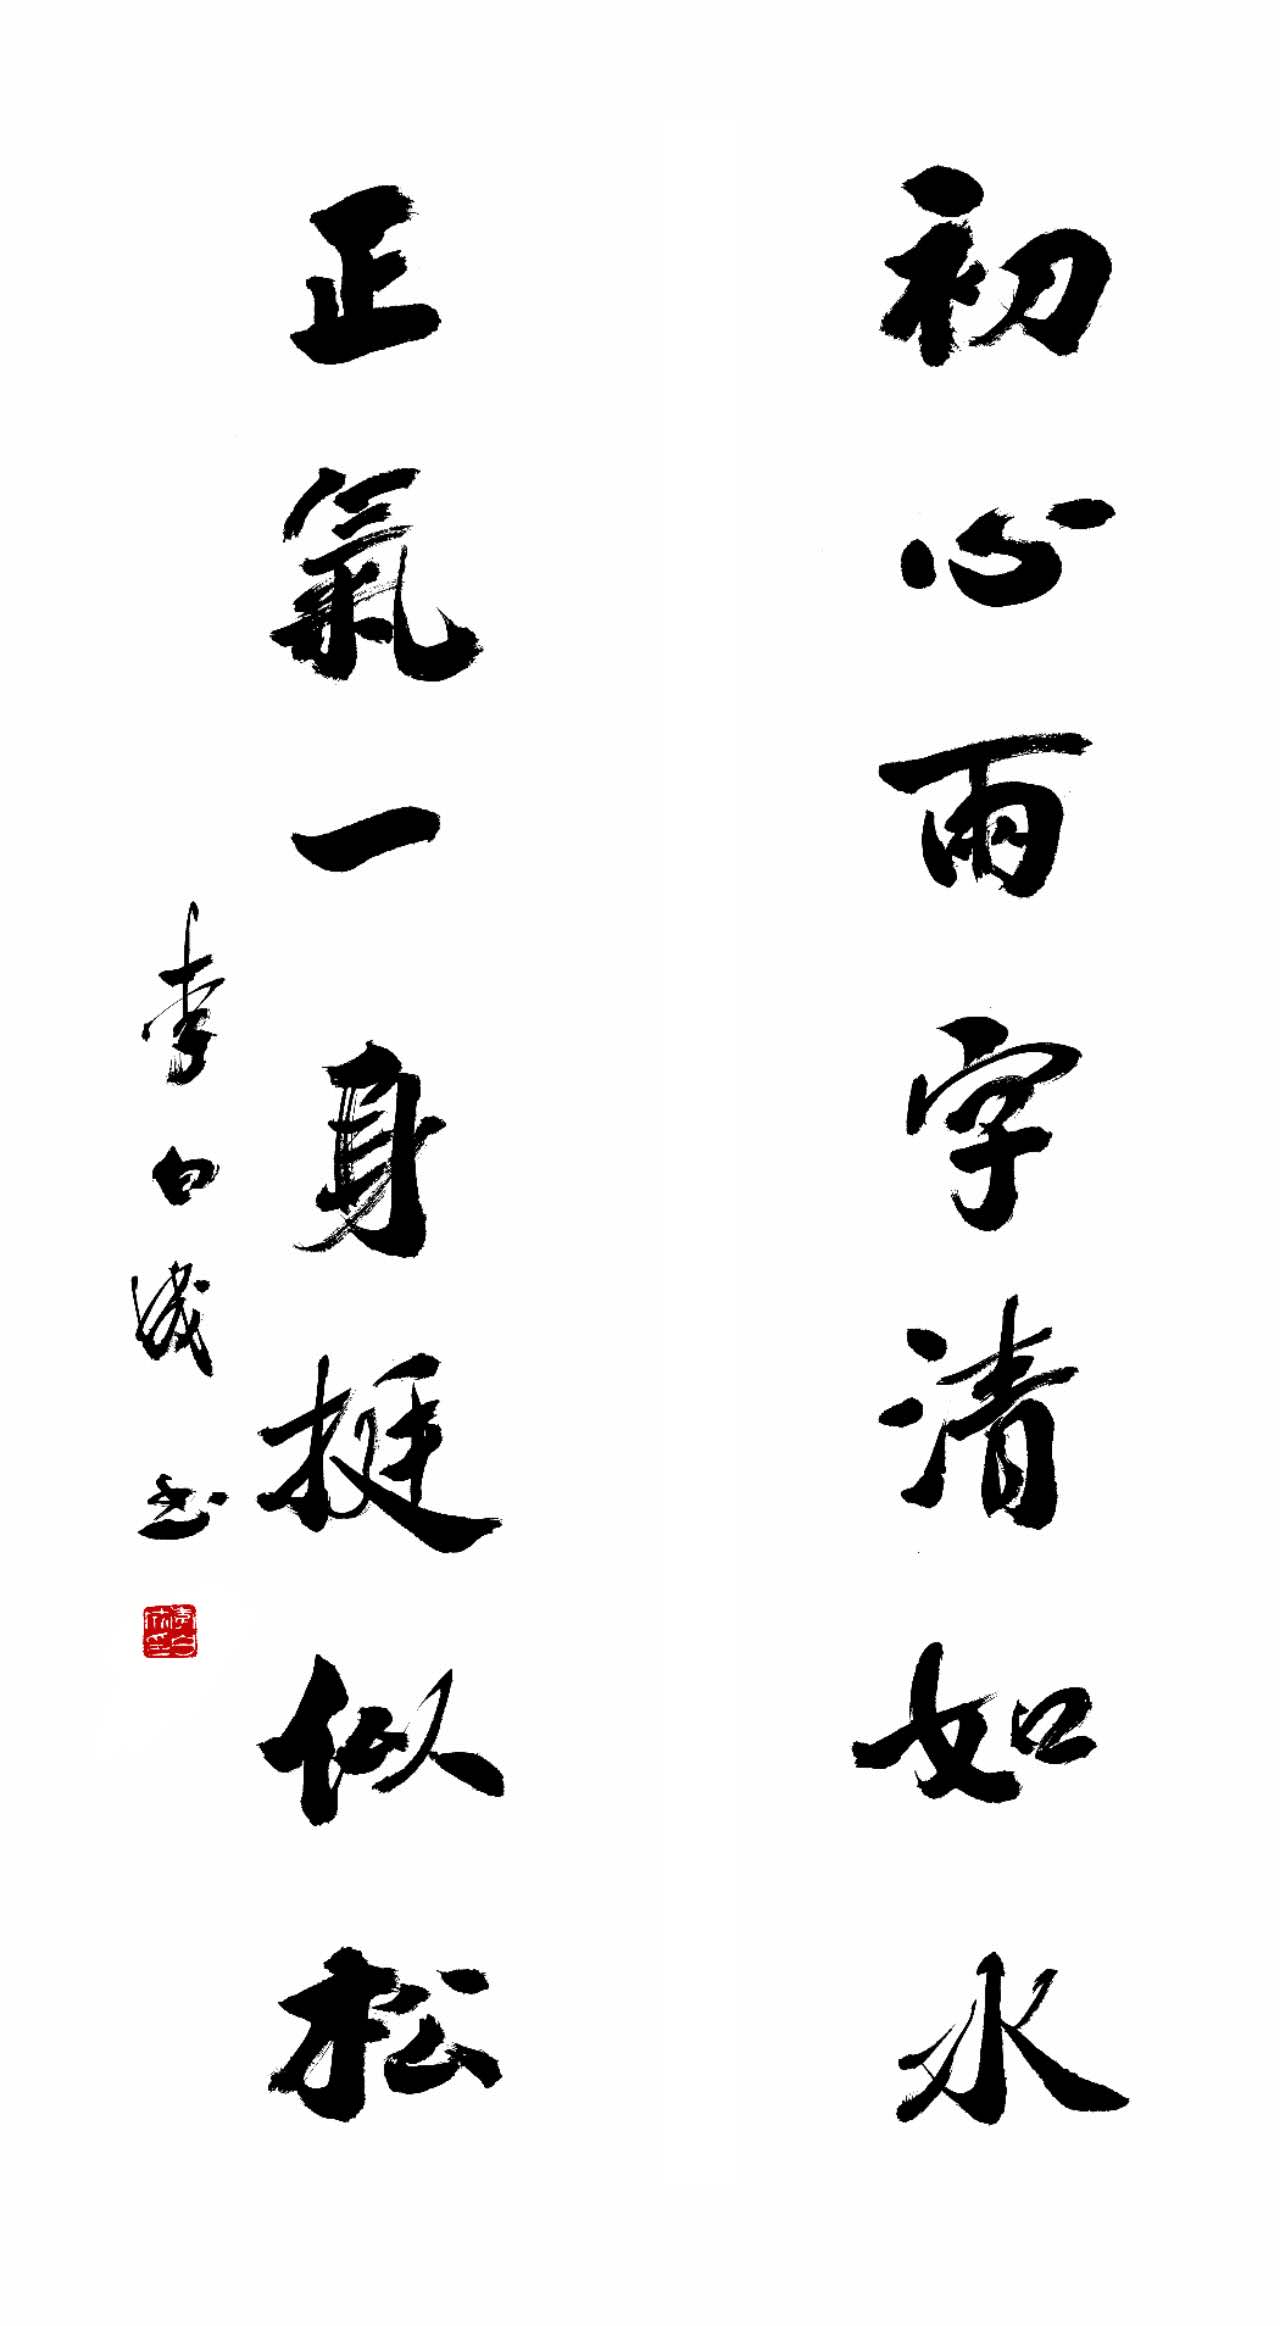 初心兩字清如水
正氣一身挺似松
李白成書